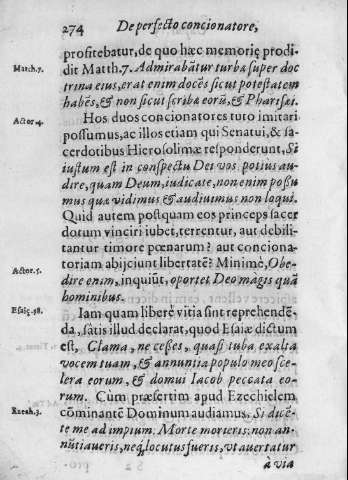 274 De perfecto concionatore,
profitebatur, de quo hæc memorię prodi-
Matth.7. dit Matth.7. Admirabãtur turbæ super doc
trina eius, erat enim docẽs sicut potestatem
habẽs, & non sicut scribæ eorũ, & Pharisæi.
Actor.4. Hos duos concionatores tuto imitari
possumus, ac illos etiam qui Senatui, & sa-
cerdotibus Hierosolimæ responderunt, Si
iustum est in conspectu Dei vos potius au-
dire, quam Deum, iudicate, non enim possu
mus quæ vidimus & audiuimus non loqui.
Quid autem postquam eos princeps sacer
dotum vinciri iubet, terrentur, aut debili-
tantur timore pœnarum? aut conciona-
toriam abijciunt libertatẽ? Minimè, Obe-
Actor.5. dire enim, inquiũt, oportet Deo magis quã
hominibus.
Esaię.58. Iam quam liberè vitia sint reprehendẽ-
da, satis illud declarat, quod Esaiæ dictum
est, Clama, ne cesses, quasi tuba exalta
vocem tuam, & annuntia populo meo sce-
lera eorum, & domui Iacob peccata eo-
rum. Cùm præsertim apud Ezechielem
Ezech.3. cõminantẽ Dominum audiamus, Si dicẽ-
te me ad impium: Morte morieris: non an-
nũtiaueris, neq; locutus fueris, vt auertatur
a via